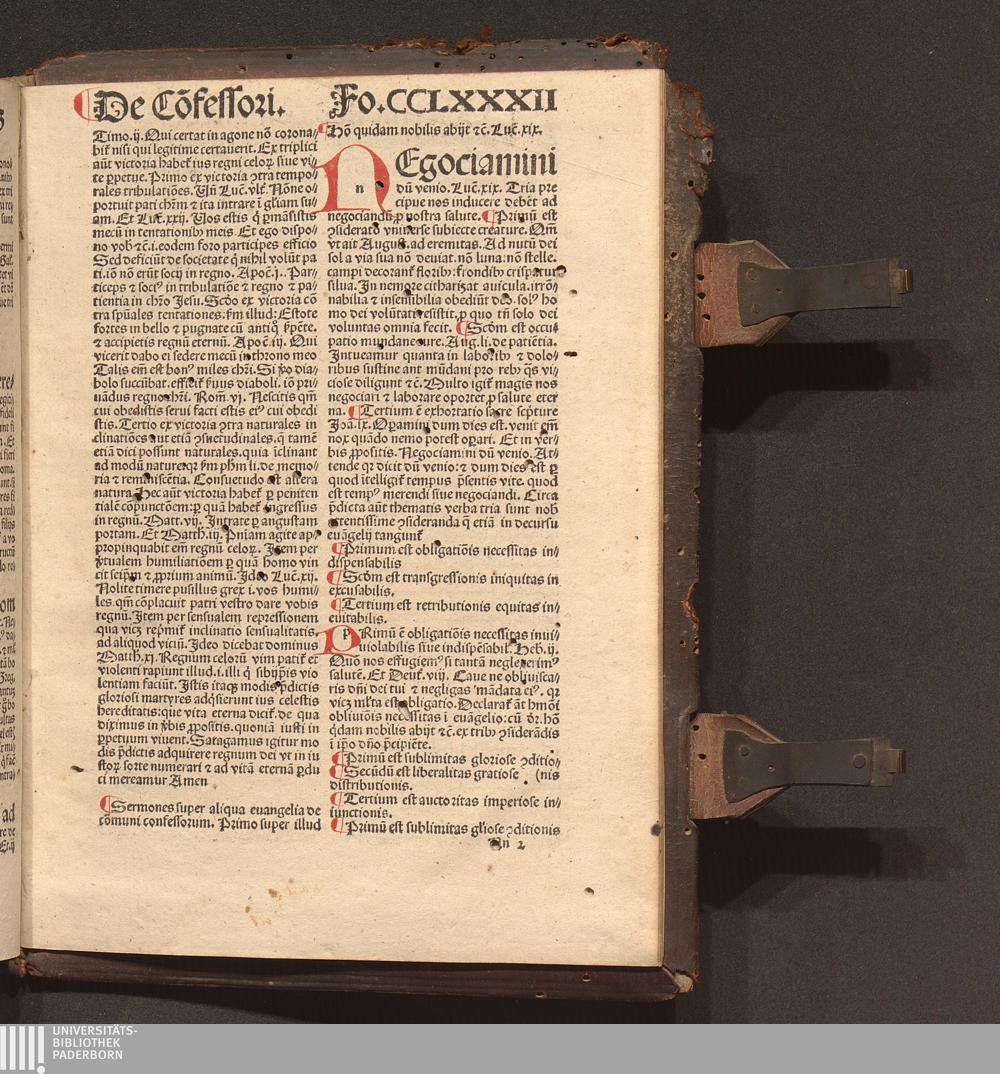 De Cõfessori.
Fo.CCLXXXII
Timo.ij. Qui certat in agone nõ corona⸗
bit᷑ nisi qui legitime certauerit. Ex triplici
aũt victoria habet᷑ ius regni celoꝝ siue vi⸗
te ꝑpetue. Primo ex victoria ↄtra tempo⸗
rales tribulatiões. Vñ Luc̃. vlt̃. Nõne o⸗
portuit pati chr̃m ⁊ ita intrare ĩ gl̃iam su⸗
am. Et Luc̃.xxij. Vos estis q̇ ꝑmãsistis
mecũ in tentationibꝰ meis. Et ego dispo⸗
no vob̃ ⁊c̃.i.eodem foro participes efficio
Sed deficiũt de societate q̇ nihil volũt pa
ti.iõ nõ erũt socij in regno. Apoc̃.j. Par⸗
ticeps ⁊ sociꝰ in tribulatiõe ⁊ regno ⁊ pa⸗
tientia in chr̃o Jesu. Scd̃o ex victoria cõ
tra sp̃uales tentationes. ẜm illud: Estote
fortes in bello ⁊ pugnate cũ antiq̃ ẜpẽte.
⁊ accipietis regnũ eternũ. Apoc̃.iij. Qui
vicerit dabo ei sedere mecũ in throno meo
Talis em̃ est bonꝰ miles chr̃i. Si ꝟo dia⸗
bolo succũbat. efficit᷑ ẜuus diaboli. iõ pri⸗
uãdus regno chr̃i. Rom̃.vj. Nescitis qm̃
cui obedistis serui facti estis eiꝰ cui obedi
stis. Tertio ex victoria ↄtra naturales in
clinatiões aut etiã ↄsuetudinales. q̃ tamẽ
etiã dici possunt naturales. quia ĩclinant
ad modũ nature. qꝛ ẜm ph̃m li. de memo⸗
ria ⁊ reminiscẽtia. Consuetudo est altera
natura. Hec aũt victoria habet᷑ ꝑ peniten
tialẽ cõpunctõem: ꝑ quã habet᷑ ingressus
in regnũ. Matt.vij. Intrate ꝑ angustam
portam. Et Matth.iij. Pn̄iam agite ap⸗
ꝓpinquabit em̃ regnũ celoꝝ. Item per
ꝟtualem humiliatiõem ꝑ quã homo vin
cit seip̃m ⁊ ꝓprium animũ. Ideo Luc̃.xij.
Nolite timere pusillus grex .i. vos humi⸗
les. qm̃ cõplacuit patri vestro dare vobis
regnũ. Item per sensualem repressionem
qua vicꝫ rep̃mit᷑ inclinatio sensualitatis
ad aliquod viciũ. Ideo dicebat dominus
Matth.xj. Regnum celorũ vim patit᷑ et
violenti rapiunt illud.i.illi q̇ sibijp̃is vio
lentiam faciũt. Istis itaqꝫ modis p̃dictis
gloriosi martyres adq̇sierunt ius celestis
hereditatis: que vita eterna dicit᷑. de qua
diximus in ꝟbis ꝓpositis. quoniã iusti in
ꝑpetuum viuent. Satagamus igitur mo
dis p̃dictis adquirere regnum dei vt in iu
stoꝝ sorte numerari ⁊ ad vitã eternã ꝑdu
ci mereamur Amen
¶Sermones super aliqua euangelia de
cõmuni confessorum. Primo super illud
¶Hõ quidam nobilis abijt ⁊c̃. Luc̃.xix.
NEgociamini
n
dũ venio. Luc̃.xix. Tria pre
cipue nos inducere debẽt ad
negociandũ ꝓ nostra salute. ¶Primũ est
ↄsideratõ vniuerse subiecte creature. Qm̃
vt ait Augus. ad eremitas. Ad nutũ dei
sol a via sua nõ deuiat. nõ luna: nõ stelle.
campi decorant᷑ floribꝰ: frondibꝰ crispatur
silua. In nemore citharizat auicula. irrõ⸗
nabilia ⁊ insensibilia obediũt deo. solꝰ ho
mo dei volũtati resistit. ꝓ quo tñ solo dei
voluntas omnia fecit. ¶Scd̃m est occu⸗
patio mundane cure. Aug. li. de patiẽtia.
Intueamur quanta in laboribꝰ ⁊ dolo⸗
ribus sustine ant mũdani pro rebꝰ q̃s vi⸗
ciose diligunt ⁊c̃. Multo igit᷑ magis nos
negociari ⁊ laborare oportet ꝓ salute eter
na. ¶Tertium ẽ exhortatio sacre scp̃ture
Joã.ix. Oꝑamini dum dies est. venit em̃
nox quãdo nemo potest oꝑari. Et in ver⸗
bis ꝓpositis. Negociamini dũ venio. At⸗
tende qꝛ dicit dũ venio: ⁊ dum dies est ꝑ
quod ĩtelligit᷑ tempus p̃sentis vite. quod
est tempꝰ merendi siue negociandi. Circa
p̃dicta aũt thematis verba tria sunt nob̃
attentissime ↄsideranda q̃ etiã in decursu
euãgelij tangunt᷑
¶Primum est obligatiõis necessitas in⸗
dispensabilis
¶Scd̃m est transgressionis iniquitas in
excusabilis.
¶Tertium est retributionis equitas in⸗
euitabilis.
PRimũ ẽ obligatiõis necessitas inui⸗
p
uiolabilis siue indispẽsabil̃. Heb.ij.
Quõ nos effugiemꝰ si tantã neglexerimꝰ
salutẽ. Et Deut̃.viij. Caue ne obliuisca⸗
ris dñi dei tui ⁊ negligas mãdata eiꝰ. qꝛ
vicꝫ ml̃ta est obligatio. Declarat᷑ aũt hmõi
obliuiõis necessitas ĩ euãgelio: cũ dr̃. hõ
q̇dam nobilis abijt ⁊c̃. ex tribꝰ ↄsiderãdis
ĩ ip̃o dño p̃cipiẽte.
¶Primũ est sublimitas gloriose ↄditio⸗
¶Secũdũ est liberalitas gratiose (nis
distributionis.
¶Tertium est auctoritas imperiose in⸗
iunctionis.
¶Primũ est sublimitas gl̃iose ↄditionis
Nn 2
UNIVERSITÄTS-
BIBLIOTHEK
PADERBORN